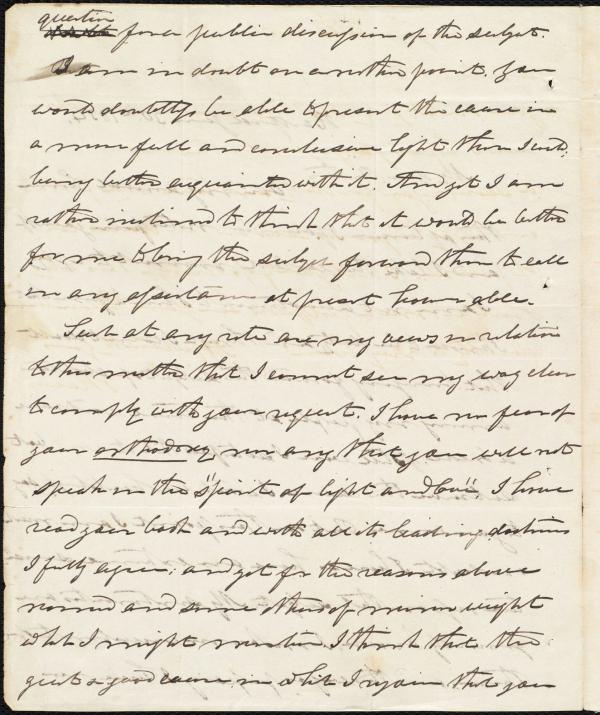 question
for a public discussion of the subject.
I am in doubt on another point. You
would doubtless be able to present the cause in
a more full and conclusive light than I could,
being better acquainted with it. And yet I am
rather inclined to think that it would be better
for me to bring the subject forward than to call
in any assistance at present however able.
Such at any rate are my views in relation
to this matter that I cannot see my way clear
to comply with your request. I have no fear of
your orthodoxy nor any that you will not
speak in the "spirit of light and love". I have
read your book and with all its leading doctrines
I fully agree; and yet for the reasons above
named and some others of minor weight
which I might mention, I think that the
great & good cause in which I rejoice that you